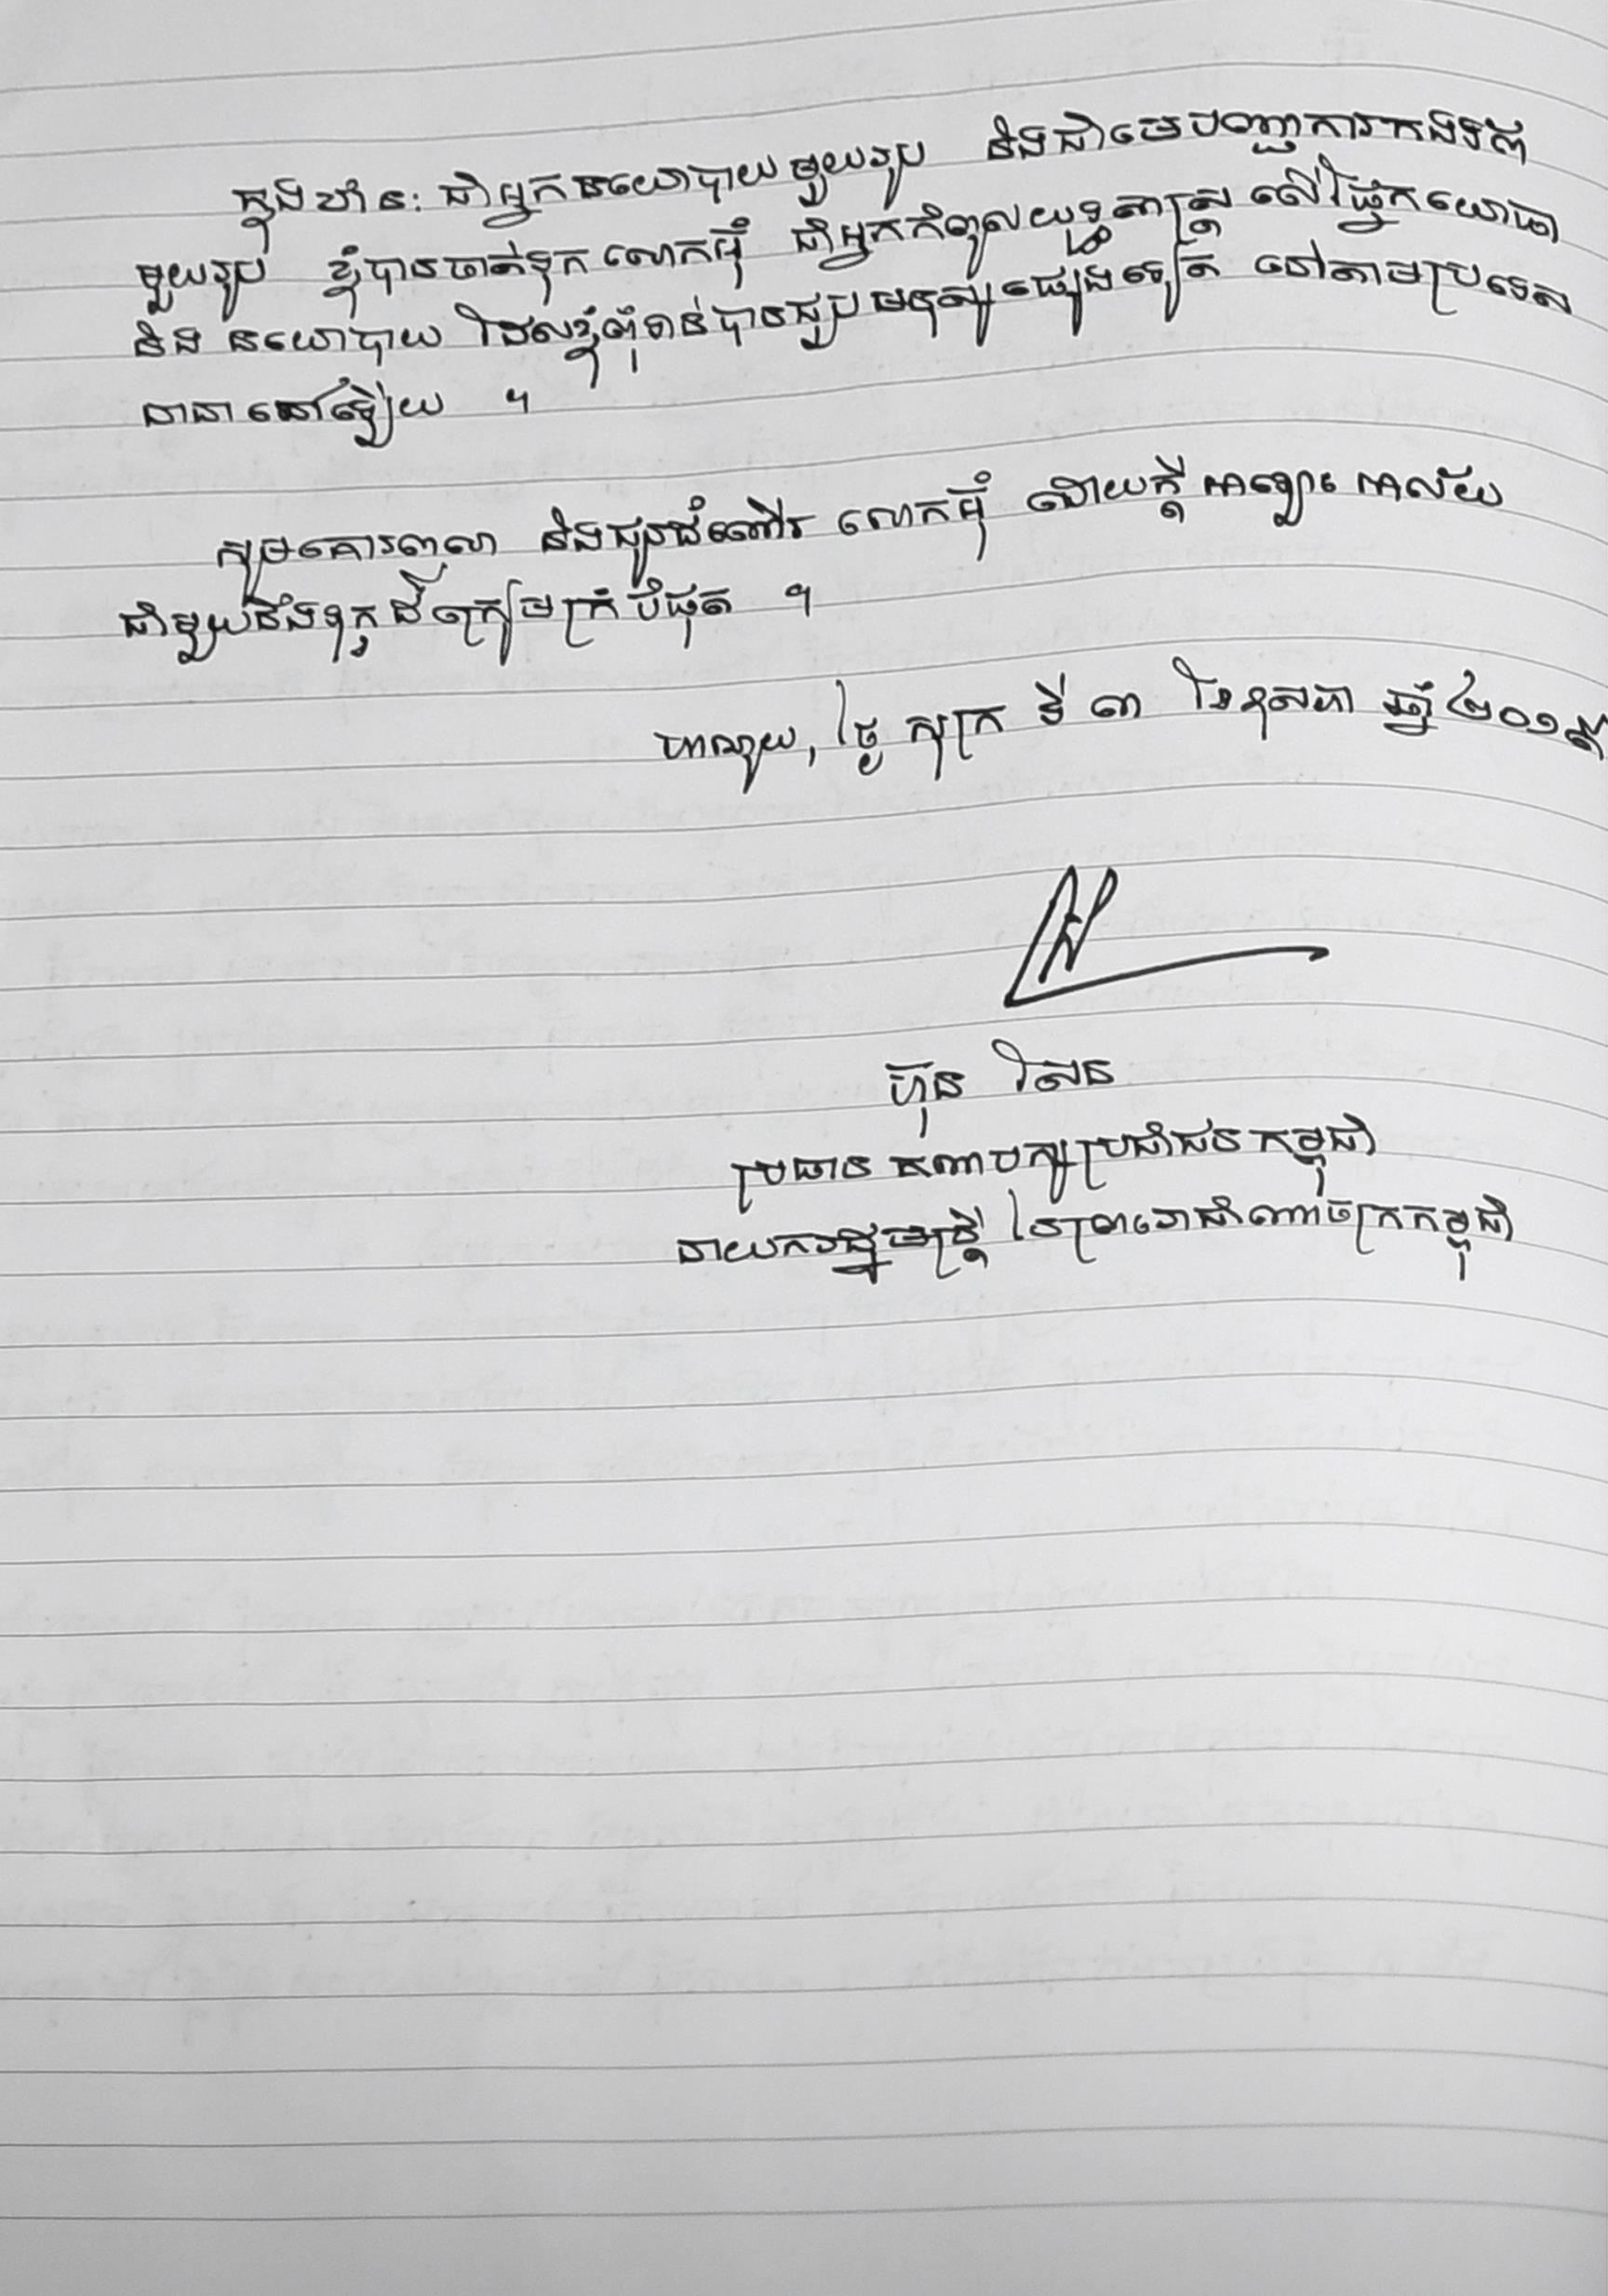 ក្នុងឋានៈជាអ្នកនយោបាយមួយរូប និងជាមេបញ្ជាការកងទ័ព
មួយរូប ខ្ញុំបានចាត់ទុកលោកអ៊ុំ ជាអ្នកកំពូលយុទ្ធសាស្ត្រ លើផ្នែកយោធា
និង នយោបាយ ដែលខ្ញុំពុំទាន់បានជួបមនុស្សផ្សេងទៀត នៅតាមប្រទេស
នានានៅឡើយ ។
សូមគោរពលា និងជូនដំណើរ លោកអ៊ុំ ដោយក្តីអាឡោះអាល័យ
ជាមួយនឹងទុក្ខដ៏ក្រៀមក្រំបំផុត ។
ហាណូយ, ថ្ងៃ សុក្រ ទី ៣ ខែឧសភា ឆ្នាំ ២០១៩
ហ៊ុន សែន
ប្រធាន គណបក្សប្រជាជនកម្ពុជា
នាយករដ្ឋមន្ត្រី នៃព្រះរាជាណាចក្រកម្ពុជា